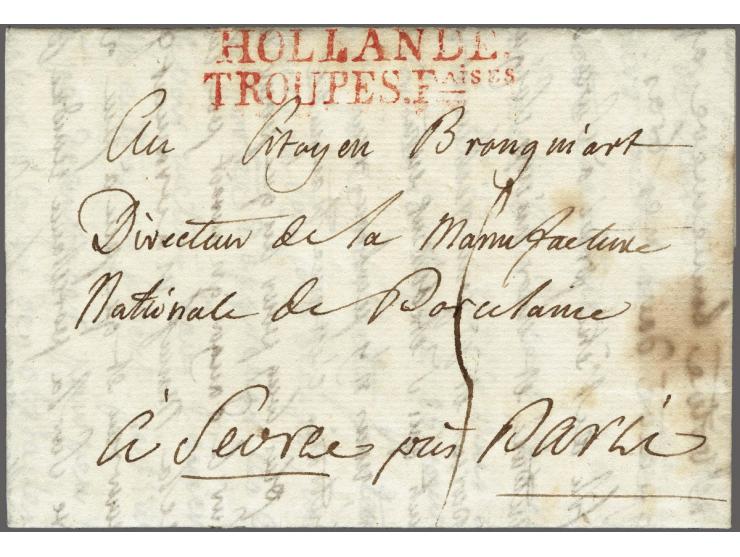 HOLLANDE.
TROUPES.Faises
Au Citoyen Brongniart
Directeur de la Manufacture
Nationale de Porcelaine
à Sevres près Paris